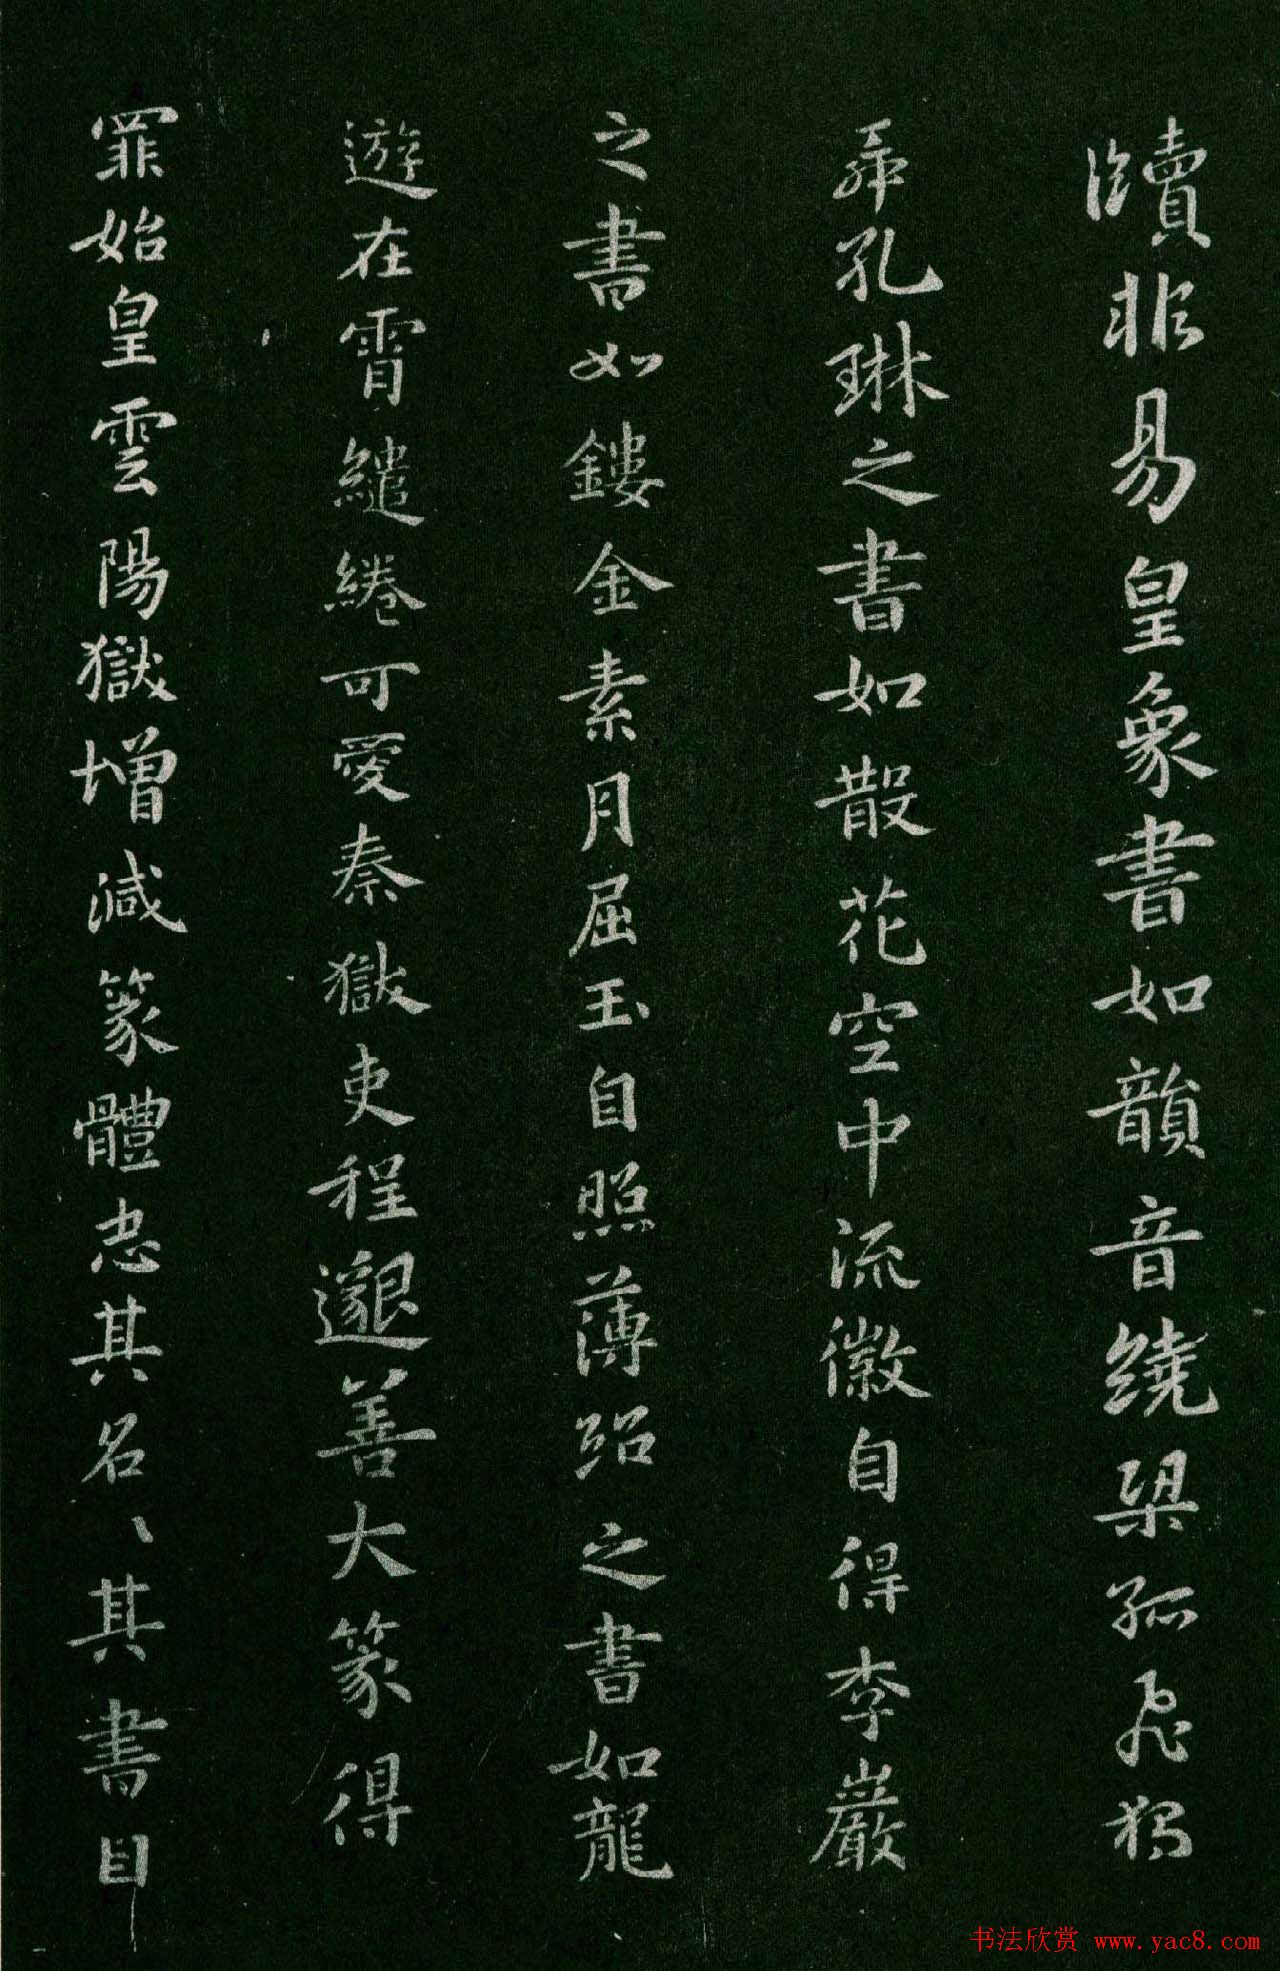 牘非易皇象書如韻音繞梁孤飛獨
舞孔琳之書如散花空中流徽自得李巖
之書如鏤金素月屈玉自照薄紹之書如龍
遊在霄繾綣可愛秦獄吏程邈善大篆得
罪始皇雲陽獄增減篆體忠其名丶其書曰
书法欣赏 www.yac8.com